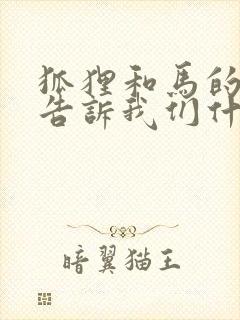 狐狸和马的
告訴我们什
暗翼猫王